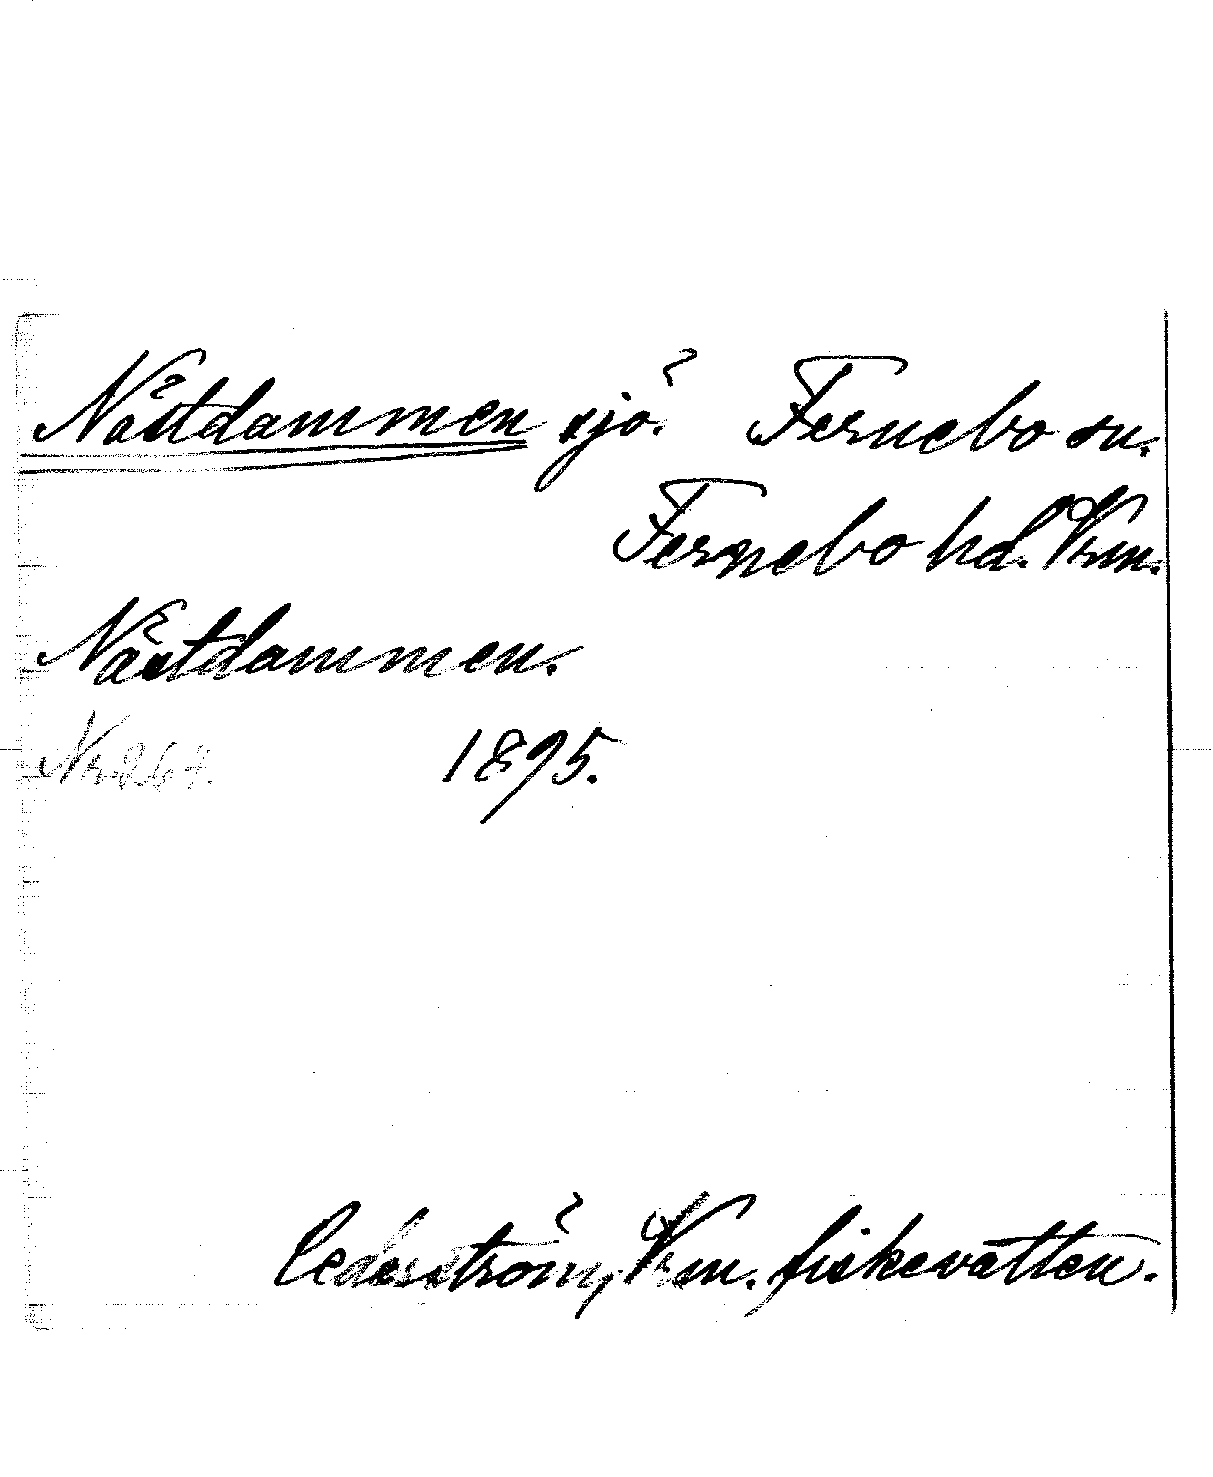 Nästdammen sjö. Fernebo sn.
Fernebo hd. Vrm.
Nästdammen.
Nr 264. 1895.
Cederström, Vrm. fiskevatten.